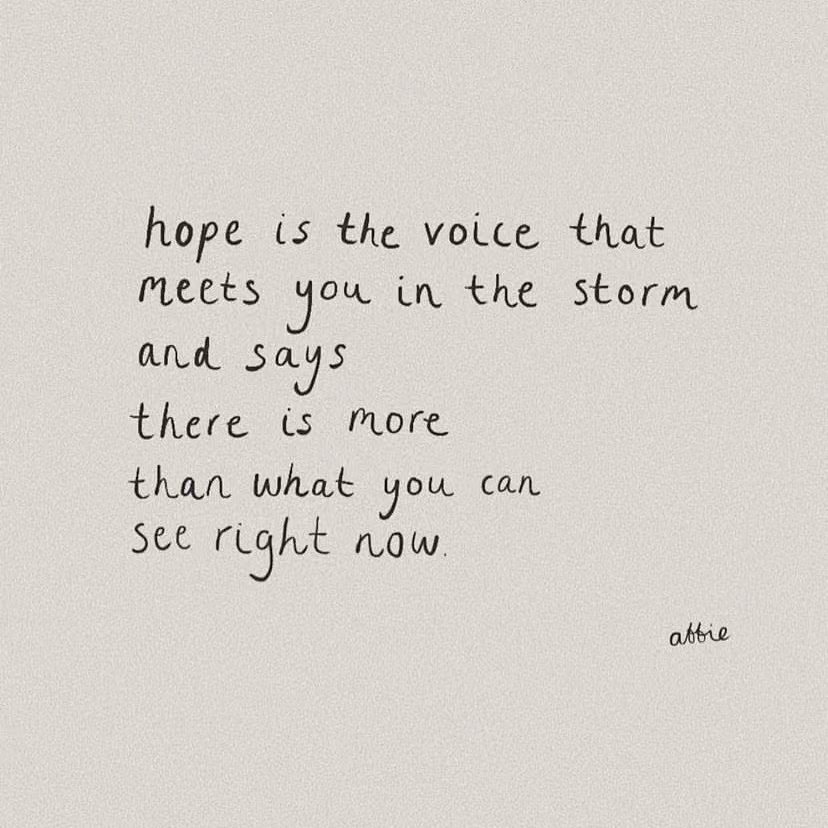 hope is the voice that
meets you in the storm
and says
there is more
than what you can
see right now.
abbie